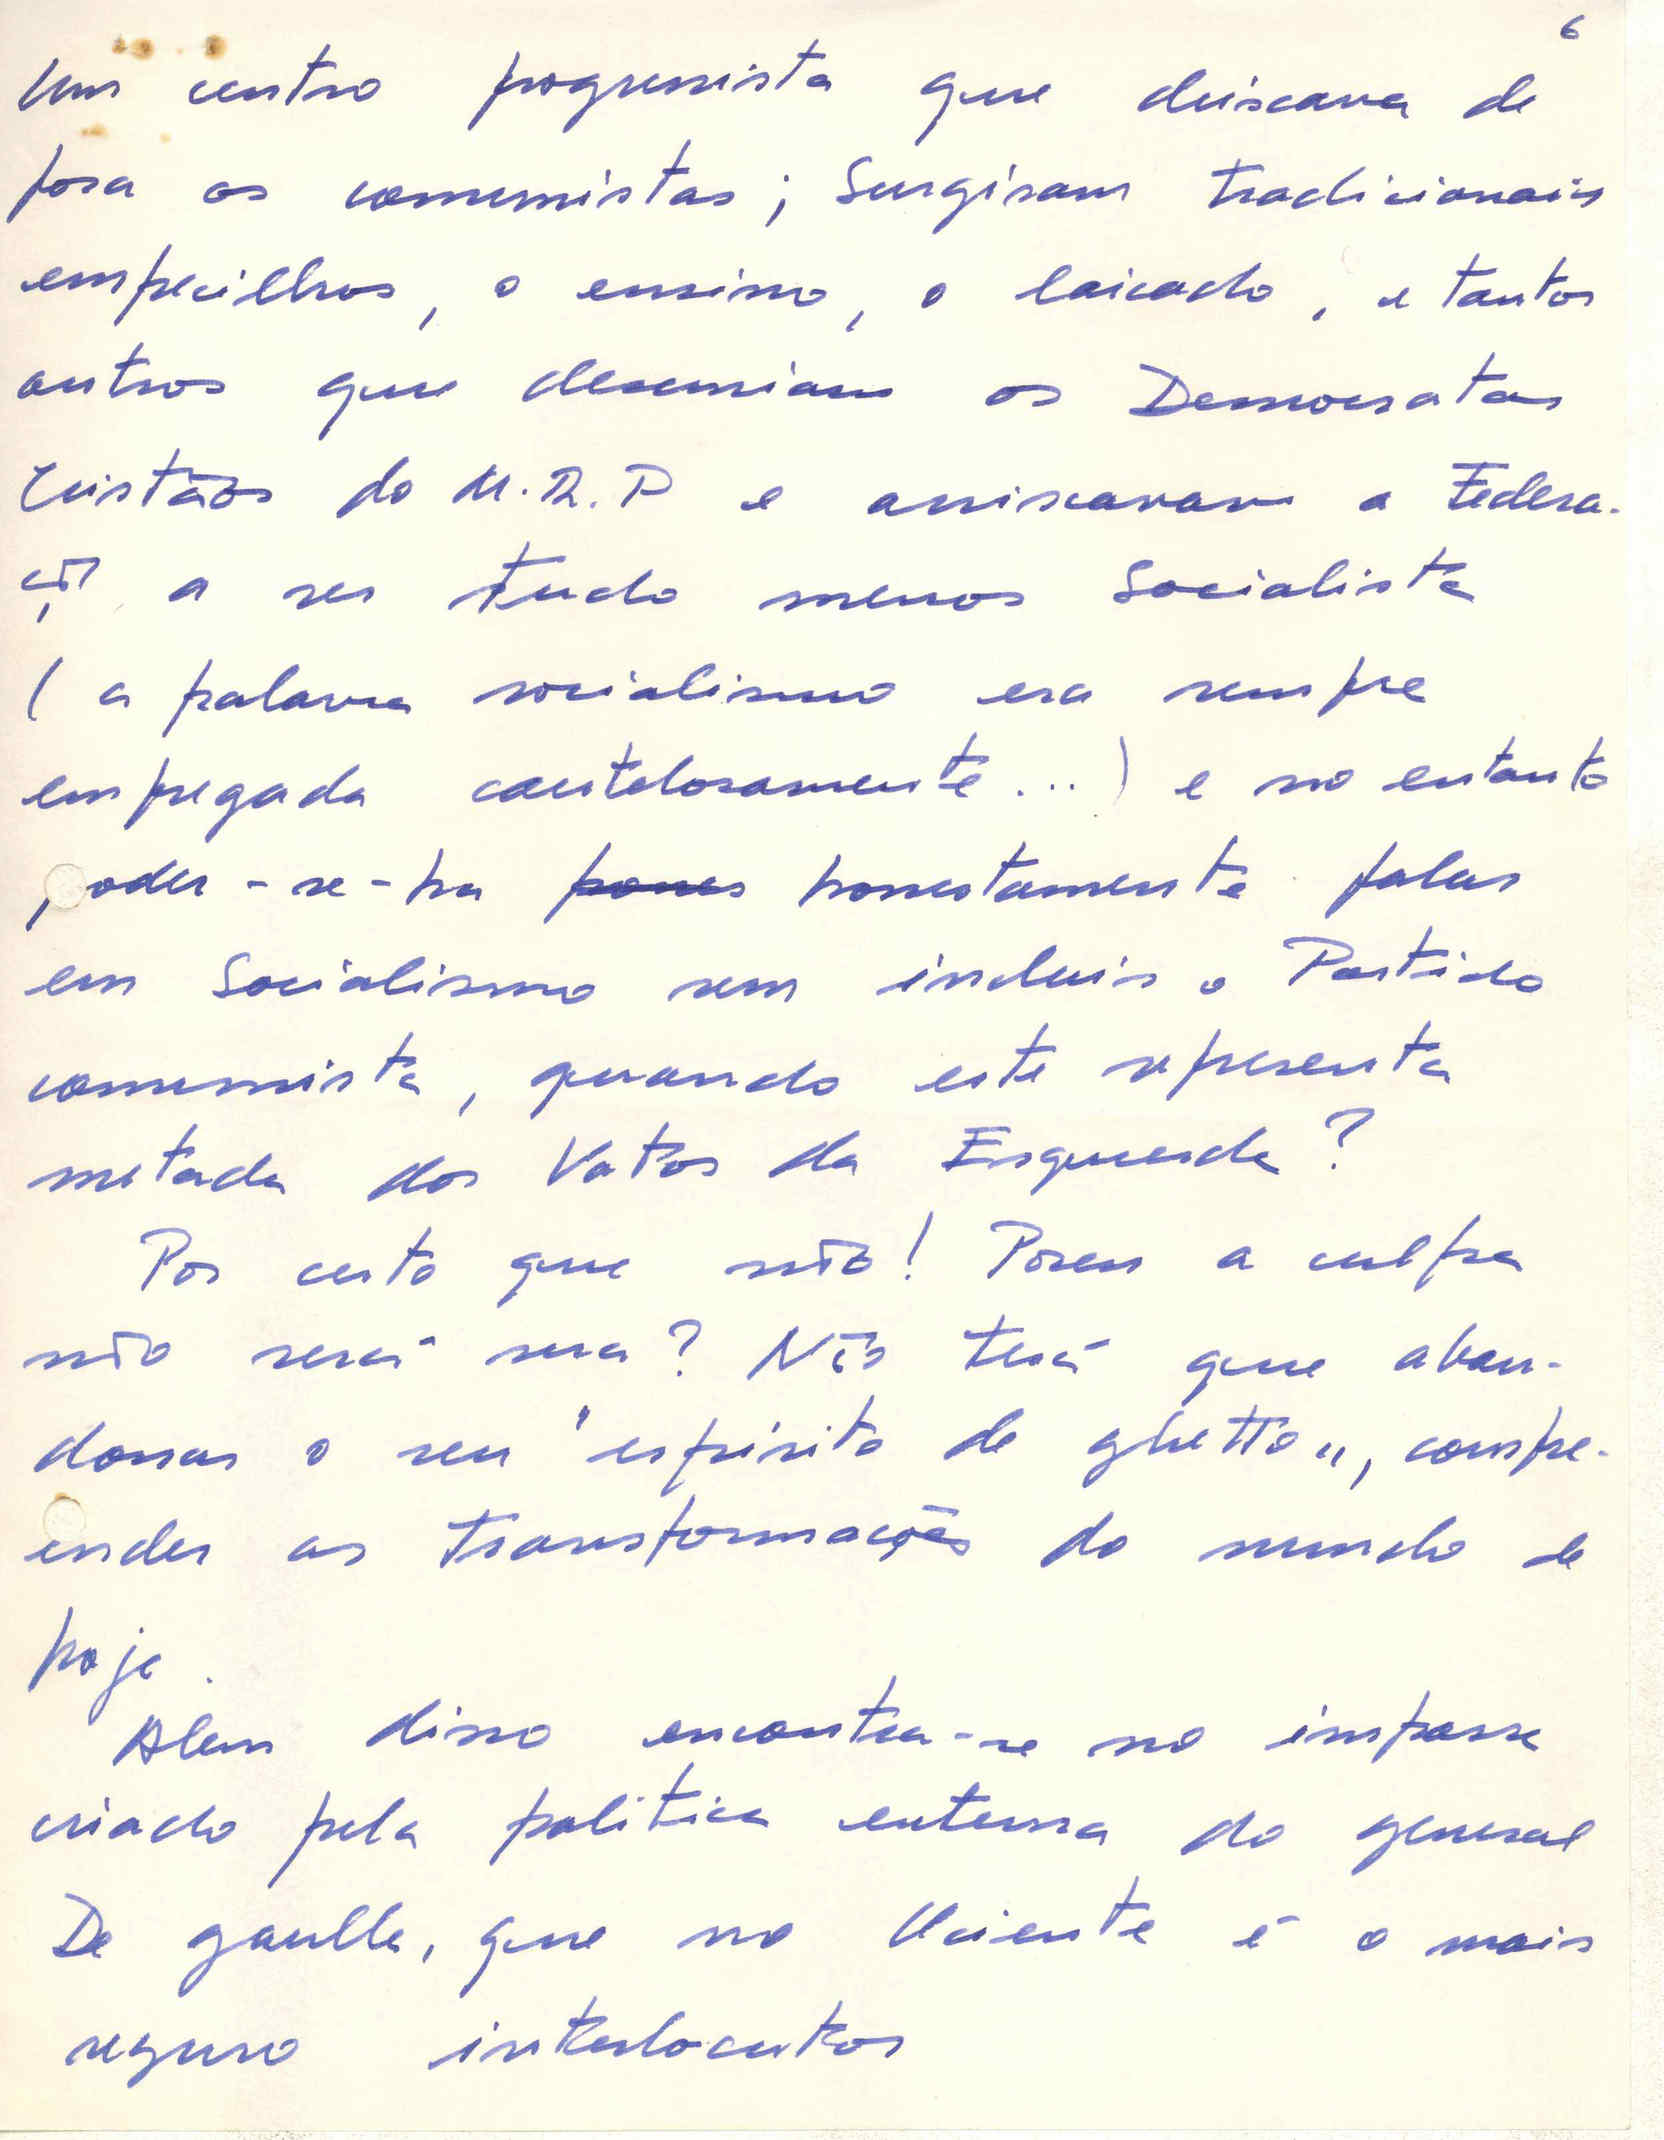 6
Um centro progressista que deixava de
fora os comunistas; Surgiram tradicionais
empecilhos, o ensino, o laicado, e tantos
outros que desuniam os Democratas
Cristãos do M.R.P e arriscavam a Federa-
ção a ser tudo menos Socialista
(a palavra socialismo era sempre
empregada cautelosamente...) e no entanto
poder-se-ha hones honestamente falar
em Socialismo sem incluir o Partido
comunista, quando este representa
metada dos Votos da Esquerda?
Por certo que não! Porem a culpa
não será sua? Não terá que aban-
donar o seu "espirito de ghetto", compre-
ender as transformações do mundo de
hoje.
Alem disso encontra-se no impasse
criado pela politica externa do general
De gaulle, que no Ociente é o mais
seguro interlocutor